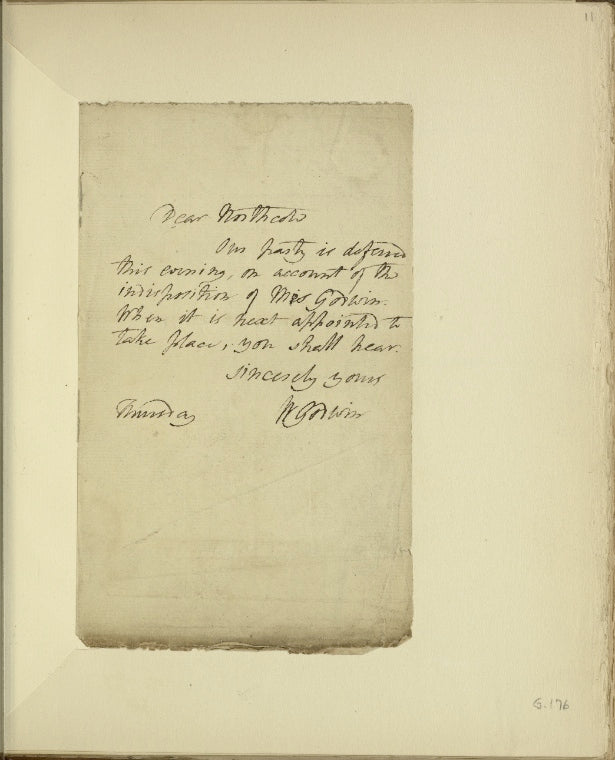 11
Dear Northcote
Our party is deferred
this evening, on account of the
indisposition of Mrs Godwin.
When it is next appointed to
take place, you shall hear.
Sincerely yours
Thursday W Godwin
G.176